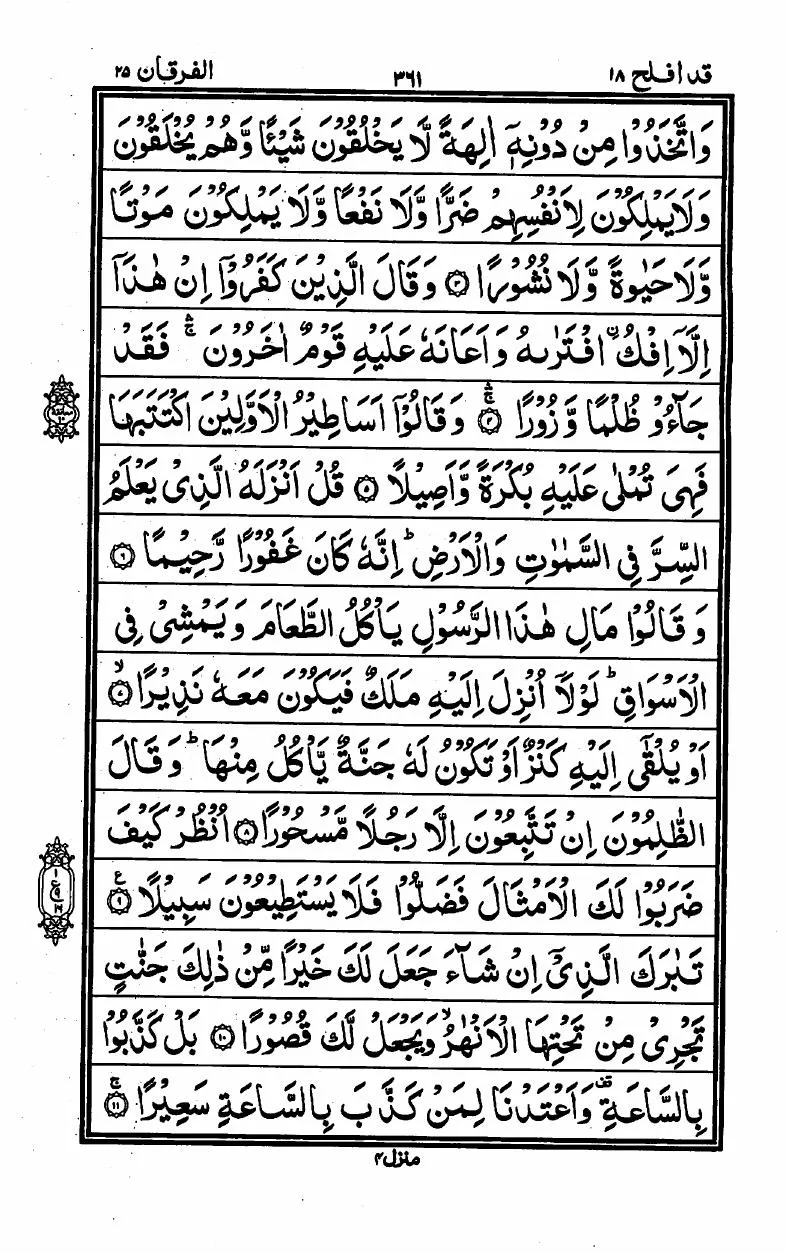 قد افلح ١٨
٣٦١
الفرقان ٢٥
وَاتَّخَذُوْا مِنْ دُوْنِهٖۤ اٰلِهَةً لَّا يَخْلُقُوْنَ شَيْـًٔا وَّهُمْ يُخْلَقُوْنَ
وَلَا يَمْلِكُوْنَ لِاَنْفُسِهِمْ ضَرًّا وَّلَا نَفْعًا وَّلَا يَمْلِكُوْنَ مَوْتًا
وَّلَا حَيٰوةً وَّلَا نُشُوْرًا ۝٣ وَقَالَ الَّذِيْنَ كَفَرُوْۤا اِنْ هٰذَاۤ
اِلَّاۤ اِفْكُ ۟افْتَرٰىهُ وَاَعَانَهٗ عَلَيْهِ قَوْمٌ اٰخَرُوْنَ ۛۚ فَقَدْ
جَآءُوْ ظُلْمًا وَّزُوْرًا ۛۚ۝٤ وَقَالُوْۤا اَسَاطِيْرُ الْاَوَّلِيْنَ اكْتَتَبَهَا
فَهِىَ تُمْلٰى عَلَيْهِ بُكْرَةً وَّاَصِيْلًا ۝٥ قُلْ اَنْزَلَهُ الَّذِىْ يَعْلَمُ
السِّرَّ فِى السَّمٰوٰتِ وَالْاَرْضِ ؕ اِنَّهٗ كَانَ غَفُوْرًا رَّحِيْمًا ۝٦
وَقَالُوْا مَالِ هٰذَا الرَّسُوْلِ يَاْكُلُ الطَّعَامَ وَيَمْشِىْ فِى
الْاَسْوَاقِ ؕ لَوْلَاۤ اُنْزِلَ اِلَيْهِ مَلَكٌ فَيَكُوْنَ مَعَهٗ نَذِيْرًا ۙ۝٧
اَوْ يُلْقٰۤى اِلَيْهِ كَنْزٌ اَوْ تَكُوْنُ لَهٗ جَنَّةٌ يَّاْكُلُ مِنْهَا ؕ وَقَالَ
الظّٰلِمُوْنَ اِنْ تَتَّبِعُوْنَ اِلَّا رَجُلًا مَّسْحُوْرًا ۝٨ اُنْظُرْ كَيْفَ
ضَرَبُوْا لَكَ الْاَمْثَالَ فَضَلُّوْا فَلَا يَسْتَطِيْعُوْنَ سَبِيْلًا ۝٩ ع
تَبٰرَكَ الَّذِىْۤ اِنْ شَآءَ جَعَلَ لَكَ خَيْرًا مِّنْ ذٰلِكَ جَنّٰتٍ
تَجْرِىْ مِنْ تَحْتِهَا الْاَنْهٰرُ ۙ وَيَجْعَلْ لَّكَ قُصُوْرًا ۝١٠ بَلْ كَذَّبُوْا
بِالسَّاعَةِ ۟ وَاَعْتَدْنَا لِمَنْ كَذَّبَ بِالسَّاعَةِ سَعِيْرًا ۚ۝١١
منزل٤